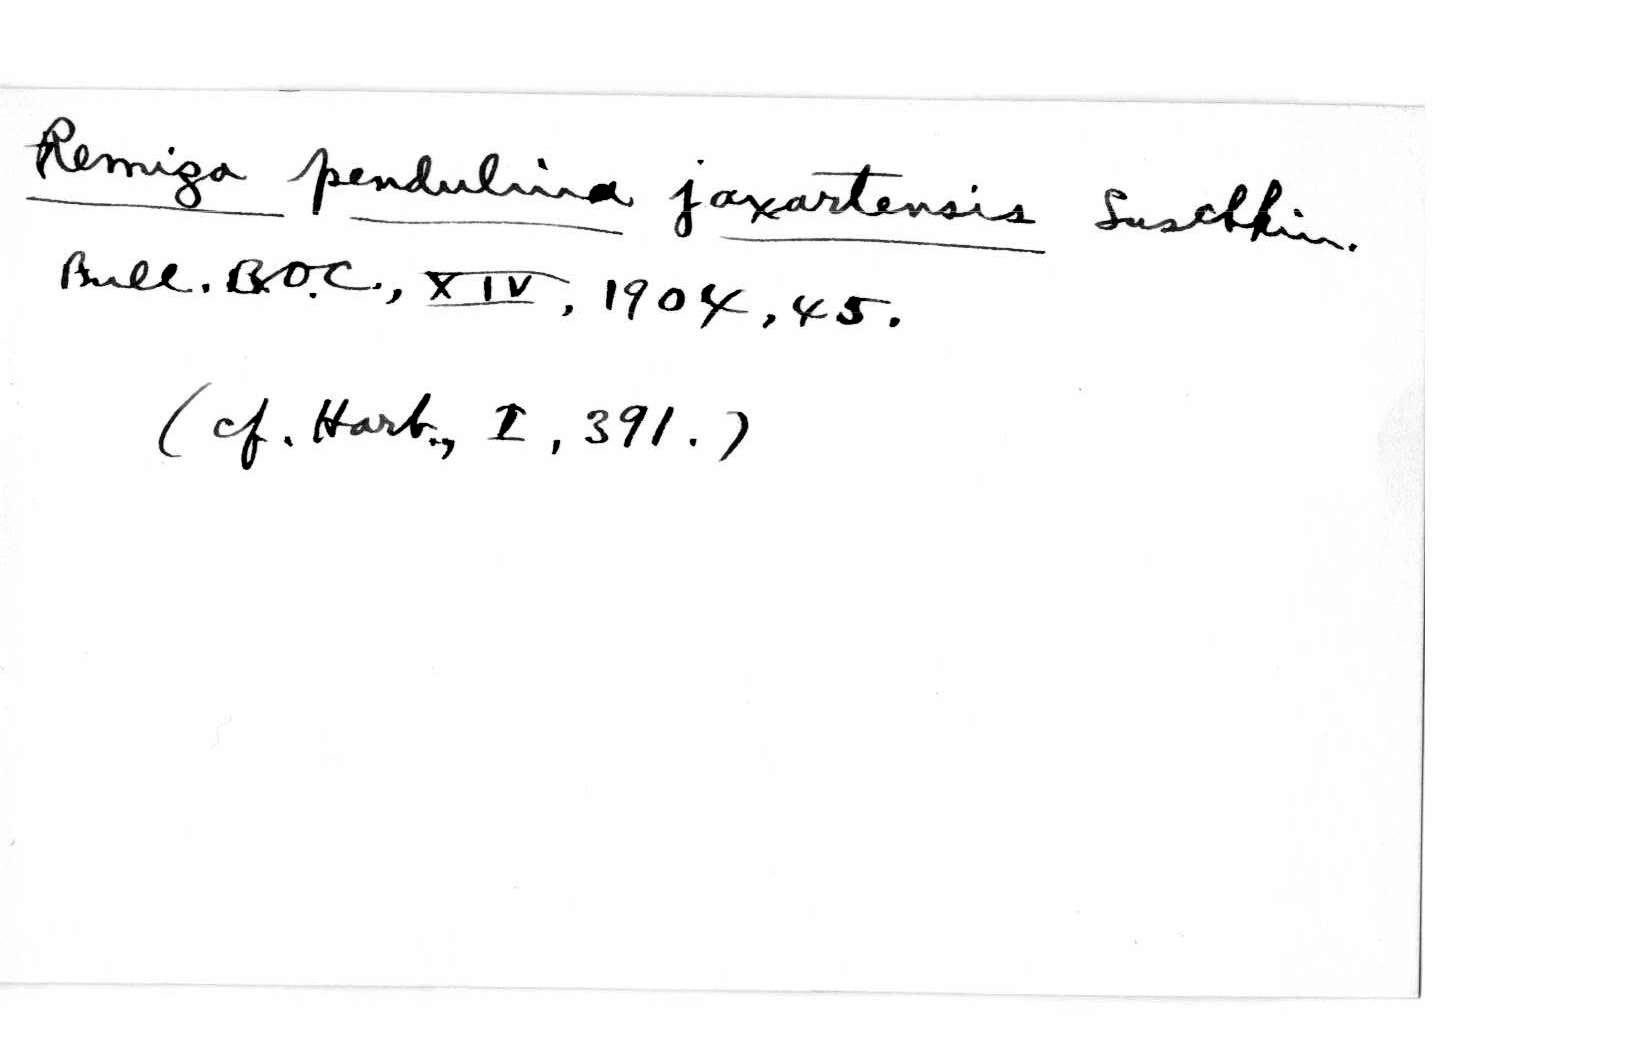 Remiza pendulina jaxartensis Suschkin.
Bull. B.O.C., XIV, 1904, 45.
(cf. Hart., I, 391.)